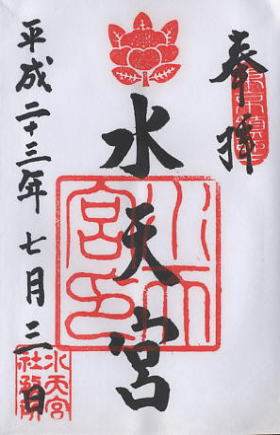 奉拝
水天宮
平成二十三年七月三日
水天宮印
水天宮